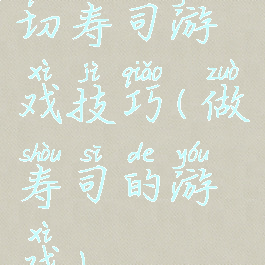 切寿司游
xì jì qiǎo zuò
戏技巧(做
shòu sī de yóu
寿司的游
xì
戏)